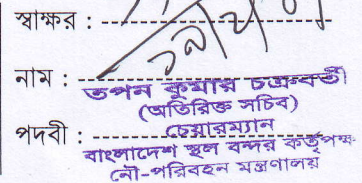 স্বাক্ষর :
নাম :
তপন কুমার চক্রবর্তী
(অতিরিক্ত সচিব)
পদবী :
চেয়ারম্যান
বাংলাদেশ স্থল বন্দর কর্তৃপক্ষ
নৌ-পরিবহন মন্ত্রণালয়